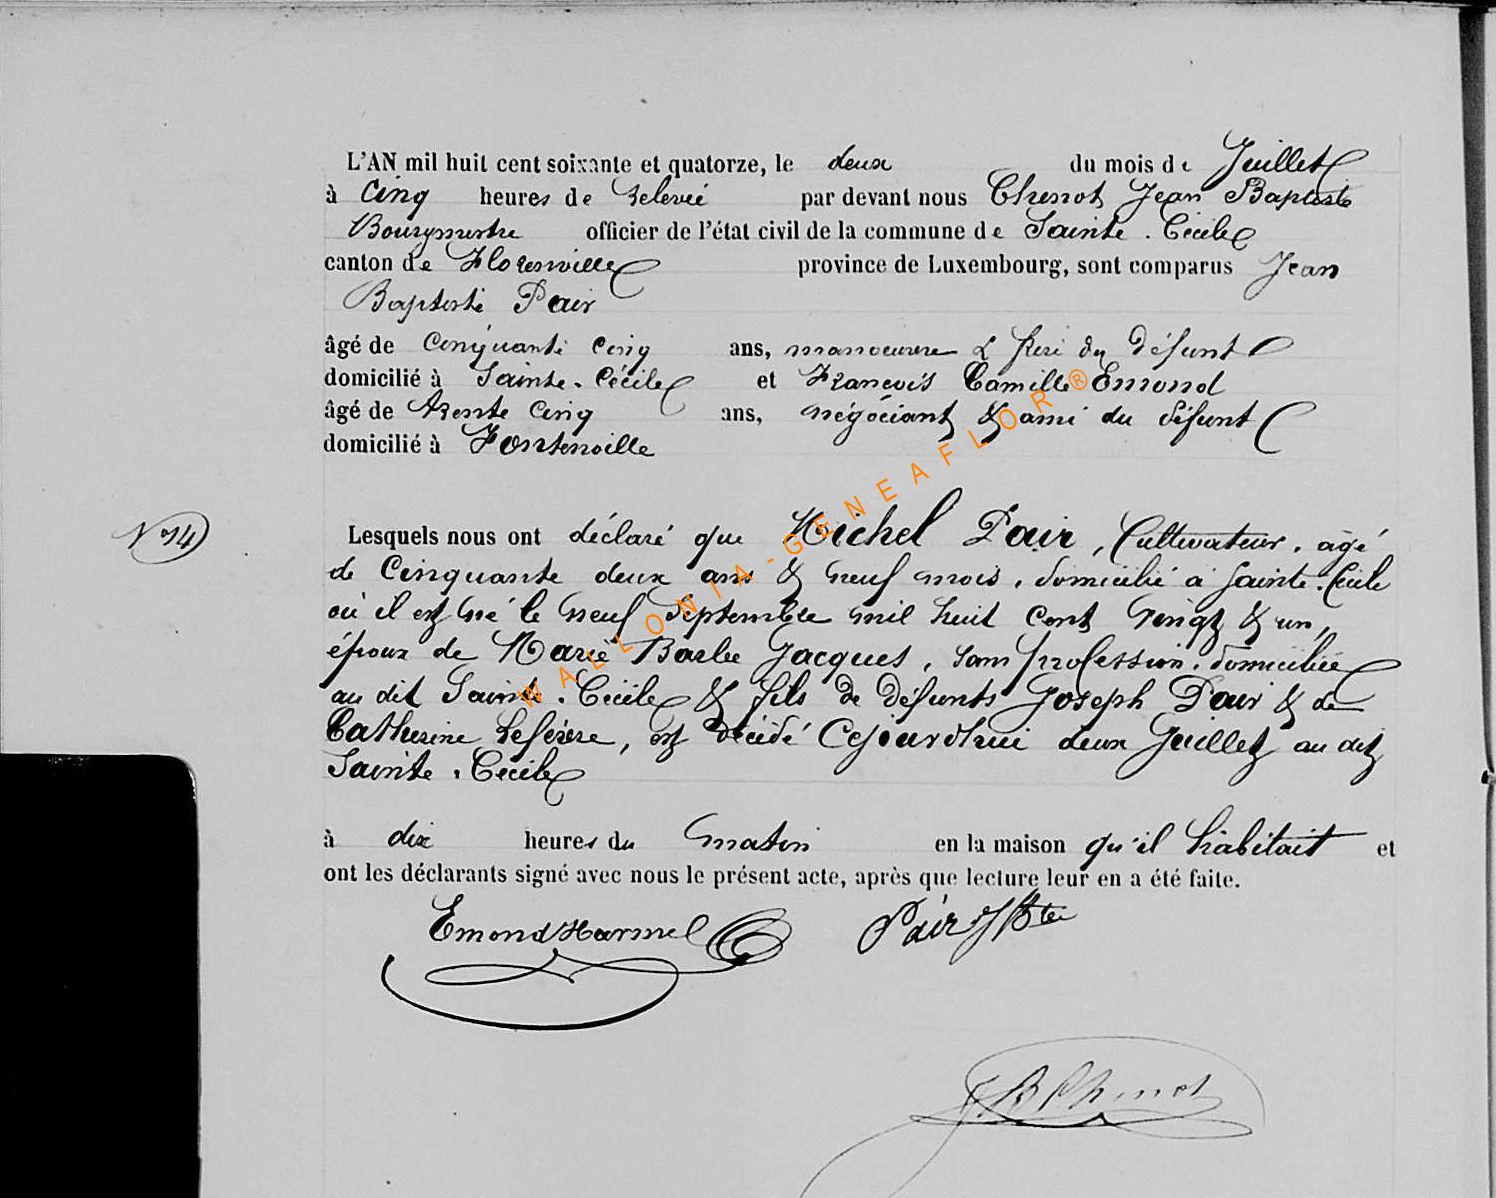 L'AN mil huit cent soixante et quatorze, le deux du mois de Juillet
à cinq heures de relevée par devant nous Chenot Jean Baptiste
Bourgmestre officier de l'état civil de la commune de Sainte. Cécile
canton de Florenville province de Luxembourg, sont comparus Jean
Baptiste Pair
âgé de cinquante cinq ans, manoeuvre & frère du défunt
domicilié à Sainte. Cécile et François Camille Emond
âgé de trente cinq ans, négociant & ami du défunt
domicilié à Fontenoille
N° 14
Lesquels nous ont déclaré que Michel Pair, Cultivateur, âgé
de Cinquante deux ans & neuf mois, domicilié à Sainte. Cécile
où il est né le neuf Septembre mil huit cent vingt & un,
époux de Marie Barbe Jacques, sans profession, domiciliée
au dit Sainte. Cécile & fils de défunts Joseph Pair & de
Catherine Lefèvre, est décédé Cejourd'hui deux Juillet au dit
Sainte. Cécile
à dix heures du matin en la maison qu'il habitait et
ont les déclarants signé avec nous le présent acte, après que lecture leur en a été faite.
Emond Harmel Pair J Bte
J. B Chenot
WALLONIA-GENEAFLOR®